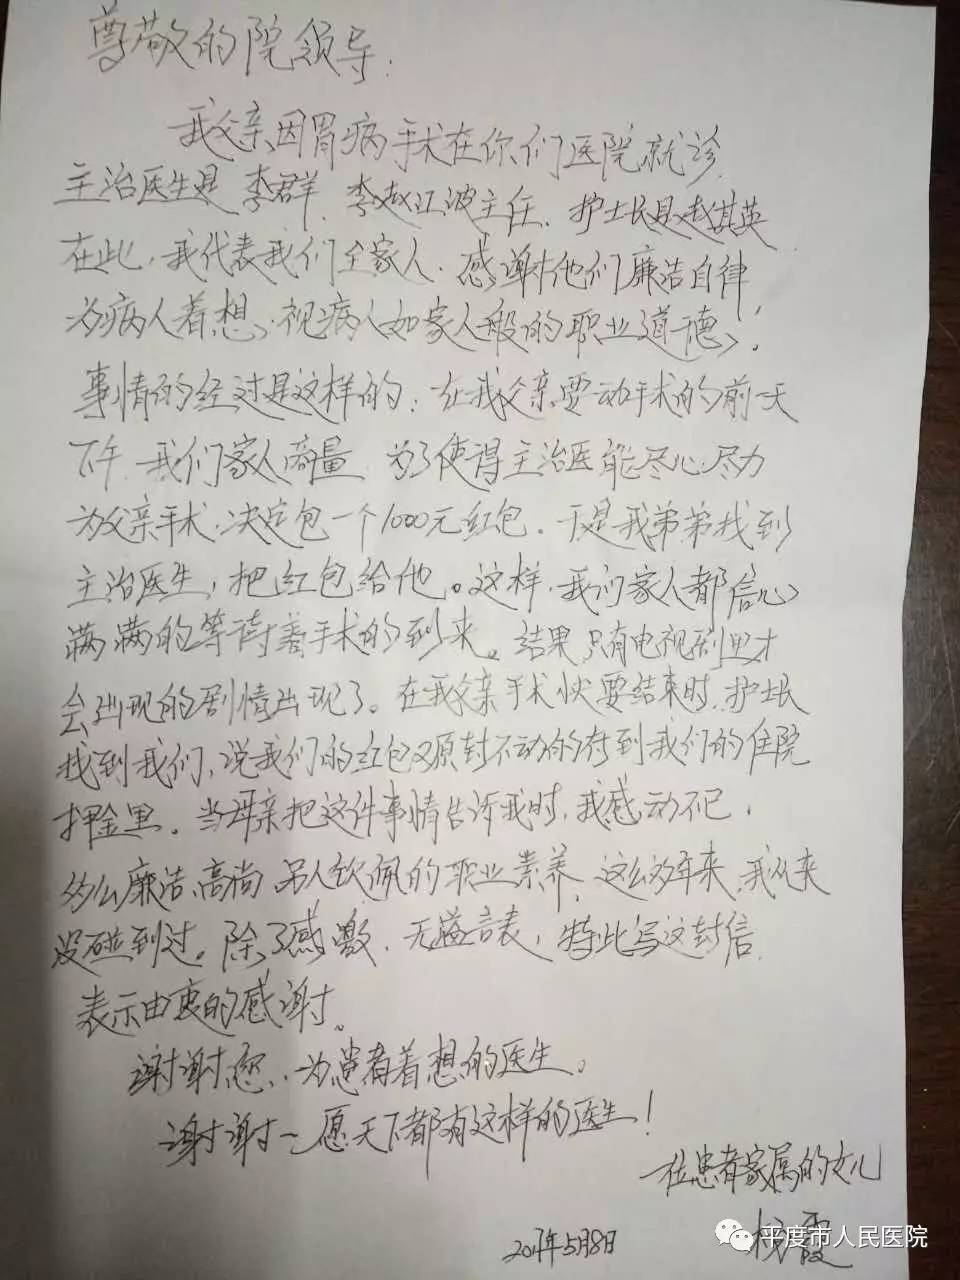 尊敬的院领导:
我父亲因胃病手术在你们医院就诊
主治医生是李群、李赵江波主任、护士长是赵其英
在此,我代表我们全家人,感谢他们廉洁自律
为病人着想、视病人如家人般的职业道德、!
事情的经过是这样的:在我父亲要动手术的前一天
下午,我们家人商量,为了使得主治医能尽心尽力
为父亲手术,决定包一个1000元红包,于是我弟弟找到
主治医生,把红包给他。这样,我们家人都信心
满满的等待着手术的到来。结果只有电视剧里才
会出现的剧情出现了。在我父亲手术快要结束时,护士长
找到我们,说我们的红包又原封不动的存到我们的住院
押金里。当母亲把这件事情告诉我时,我感动不已,
多么廉洁、高尚、另人钦佩的职业素养,这么多年来,我从来
没碰到过。除了感激,无溢言表,特此写这封信,
表示由衷的感谢。
谢谢您,为患者着想的医生。
谢谢一愿天下都有这样的医生!
一位患者家属的女儿
霞
2017年5月8日
平度市人民医院